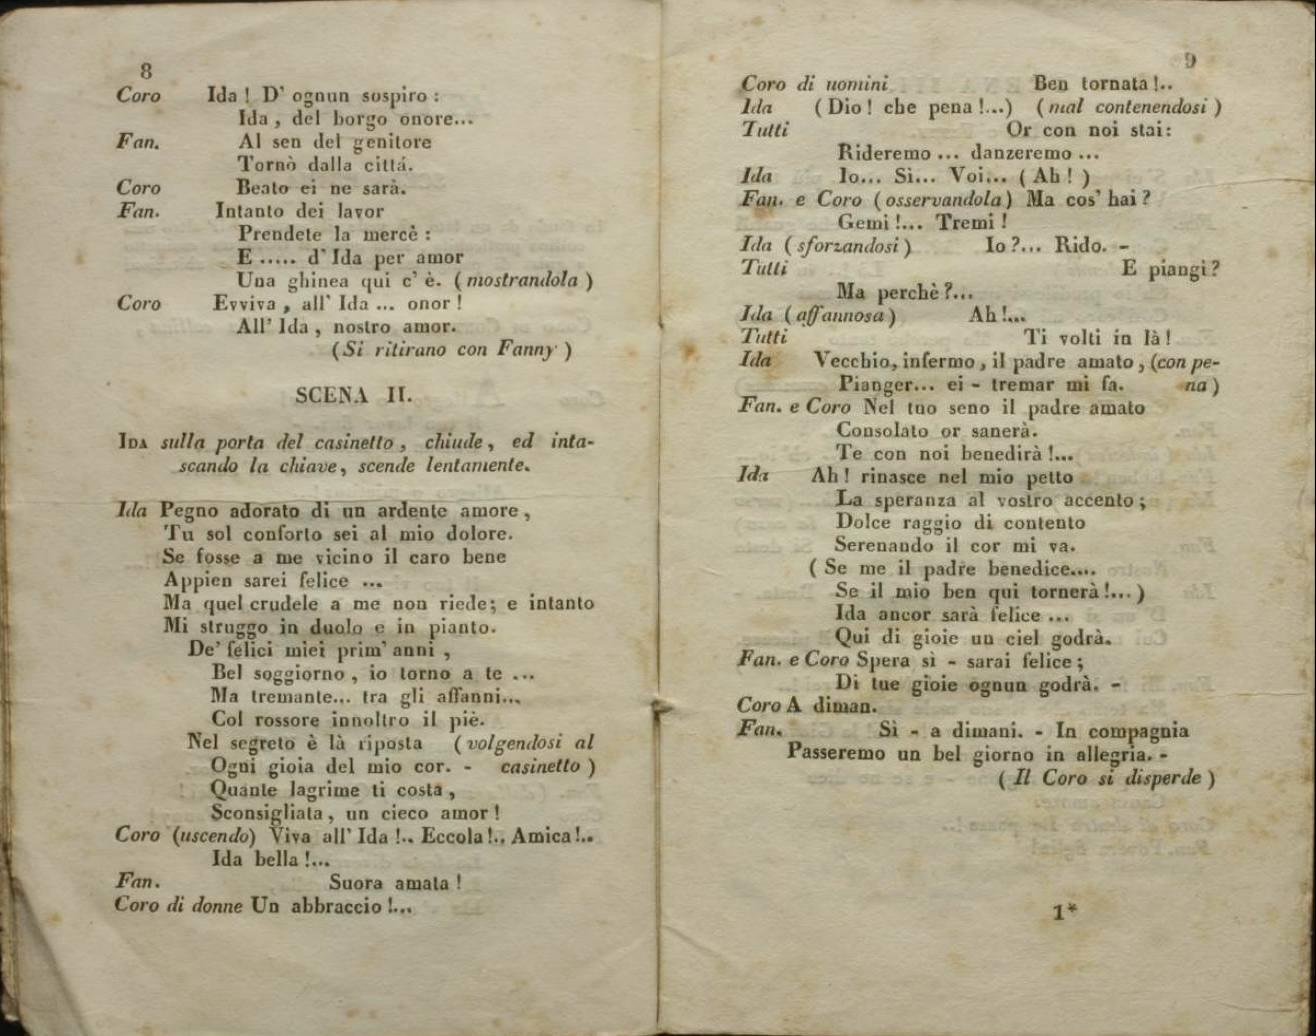 8
Coro Ida ! D' ognun sospiro :
Ida , del borgo onore...
Fan. Al sen del genitore
Tornò dalla cittá.
Coro Beato ei ne sarà.
Fan. Intanto dei lavor
Prendete la mercè :
E ..... d' Ida per amor
Una ghinea qui c' è. ( mostrandola )
Coro Evviva , all' Ida ... onor !
All' Ida , nostro amor.
( Si ritirano con Fanny )
SCENA II.
IDA sulla porta del casinetto , chiude , ed inta-
scando la chiave , scende lentamente.
Ida Pegno adorato di un ardente amore ,
Tu sol conforto sei al mio dolore.
Se fosse a me vicino il caro bene
Appien sarei felice ...
Ma quel crudele a me non riede ; e intanto
Mi struggo in duolo e in pianto.
De' felici miei prim' anni ,
Bel soggiorno , io torno a te ...
Ma tremante... tra gli affanni...
Col rossore innoltro il piè.
Nel segreto è là riposta ( volgendosi al
Ogni gioia del mio cor. - casinetto )
Quante lagrime ti costa ,
Sconsigliata , un cieco amor !
Coro (uscendo) Viva all' Ida !.. Eccola !.. Amica !..
Ida bella !...
Fan. Suora amata !
Coro di donne Un abbraccio !...
9
Coro di uomini Ben tornata !..
Ida ( Dio ! che pena !...) ( mal contenendosi )
Tutti Or con noi stai :
Rideremo ... danzeremo ...
Ida Io... Sì... Voi... ( Ah ! )
Fan. e Coro ( osservandola ) Ma cos' hai ?
Gemi !... Tremi !
Ida ( sforzandosi ) Io ?... Rido. -
Tutti E piangi ?
Ma perchè ?...
Ida ( affannosa ) Ah !...
Tutti Ti volti in là !
Ida Vecchio, infermo , il padre amato , (con pe-
Pianger... ei - tremar mi fa. na )
Fan. e Coro Nel tuo seno il padre amato
Consolato or sanerà.
Te con noi benedirà !...
Ida Ah ! rinasce nel mio petto
La speranza al vostro accento ;
Dolce raggio di contento
Serenando il cor mi va.
( Se me il padre benedice....
Se il mio ben qui tornerà !...)
Ida ancor sarà felice ...
Qui di gioie un ciel godrà.
Fan. e Coro Spera sì - sarai felice ;
Di tue gioie ognun godrà. -
Coro A diman.
Fan. Sì - a dimani. - In compagnia
Passeremo un bel giorno in allegria. -
( Il Coro si disperde )
1*